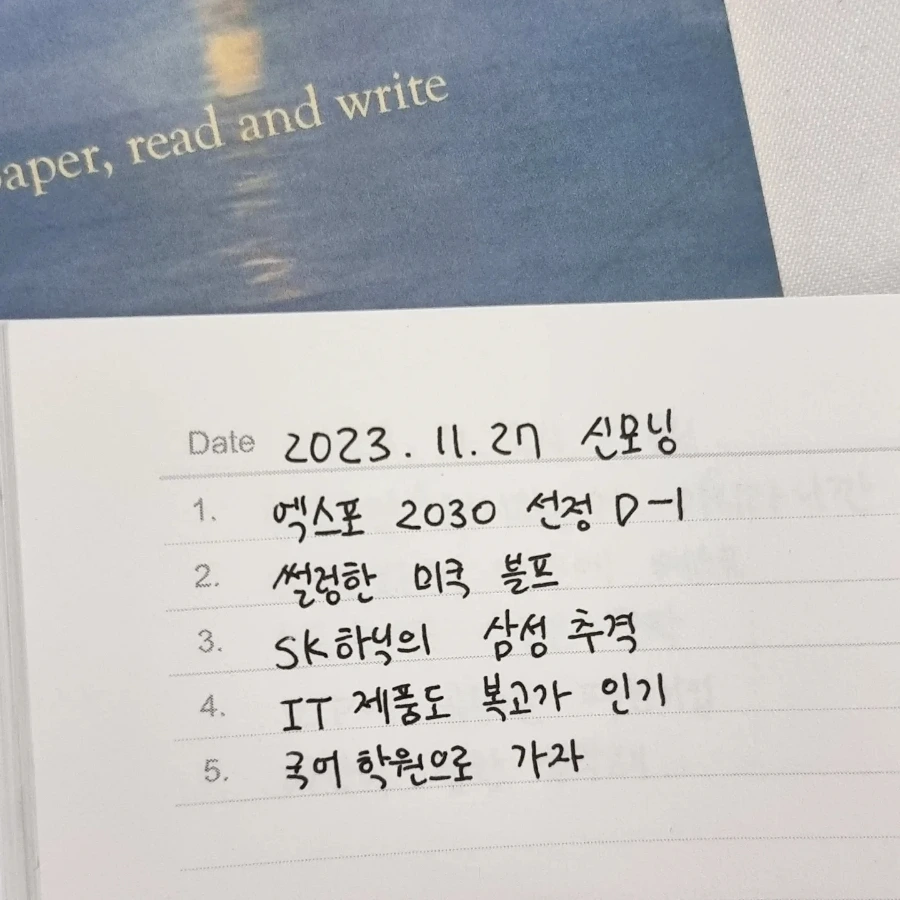 paper, read and write
Date 2023. 11. 27 신모닝
1. 엑스포 2030 선정 D-1
2. 썰렁한 미국 블프
3. SK하닉의 삼성 추격
4. IT 제품도 복고가 인기
5. 국어 학원으로 가자